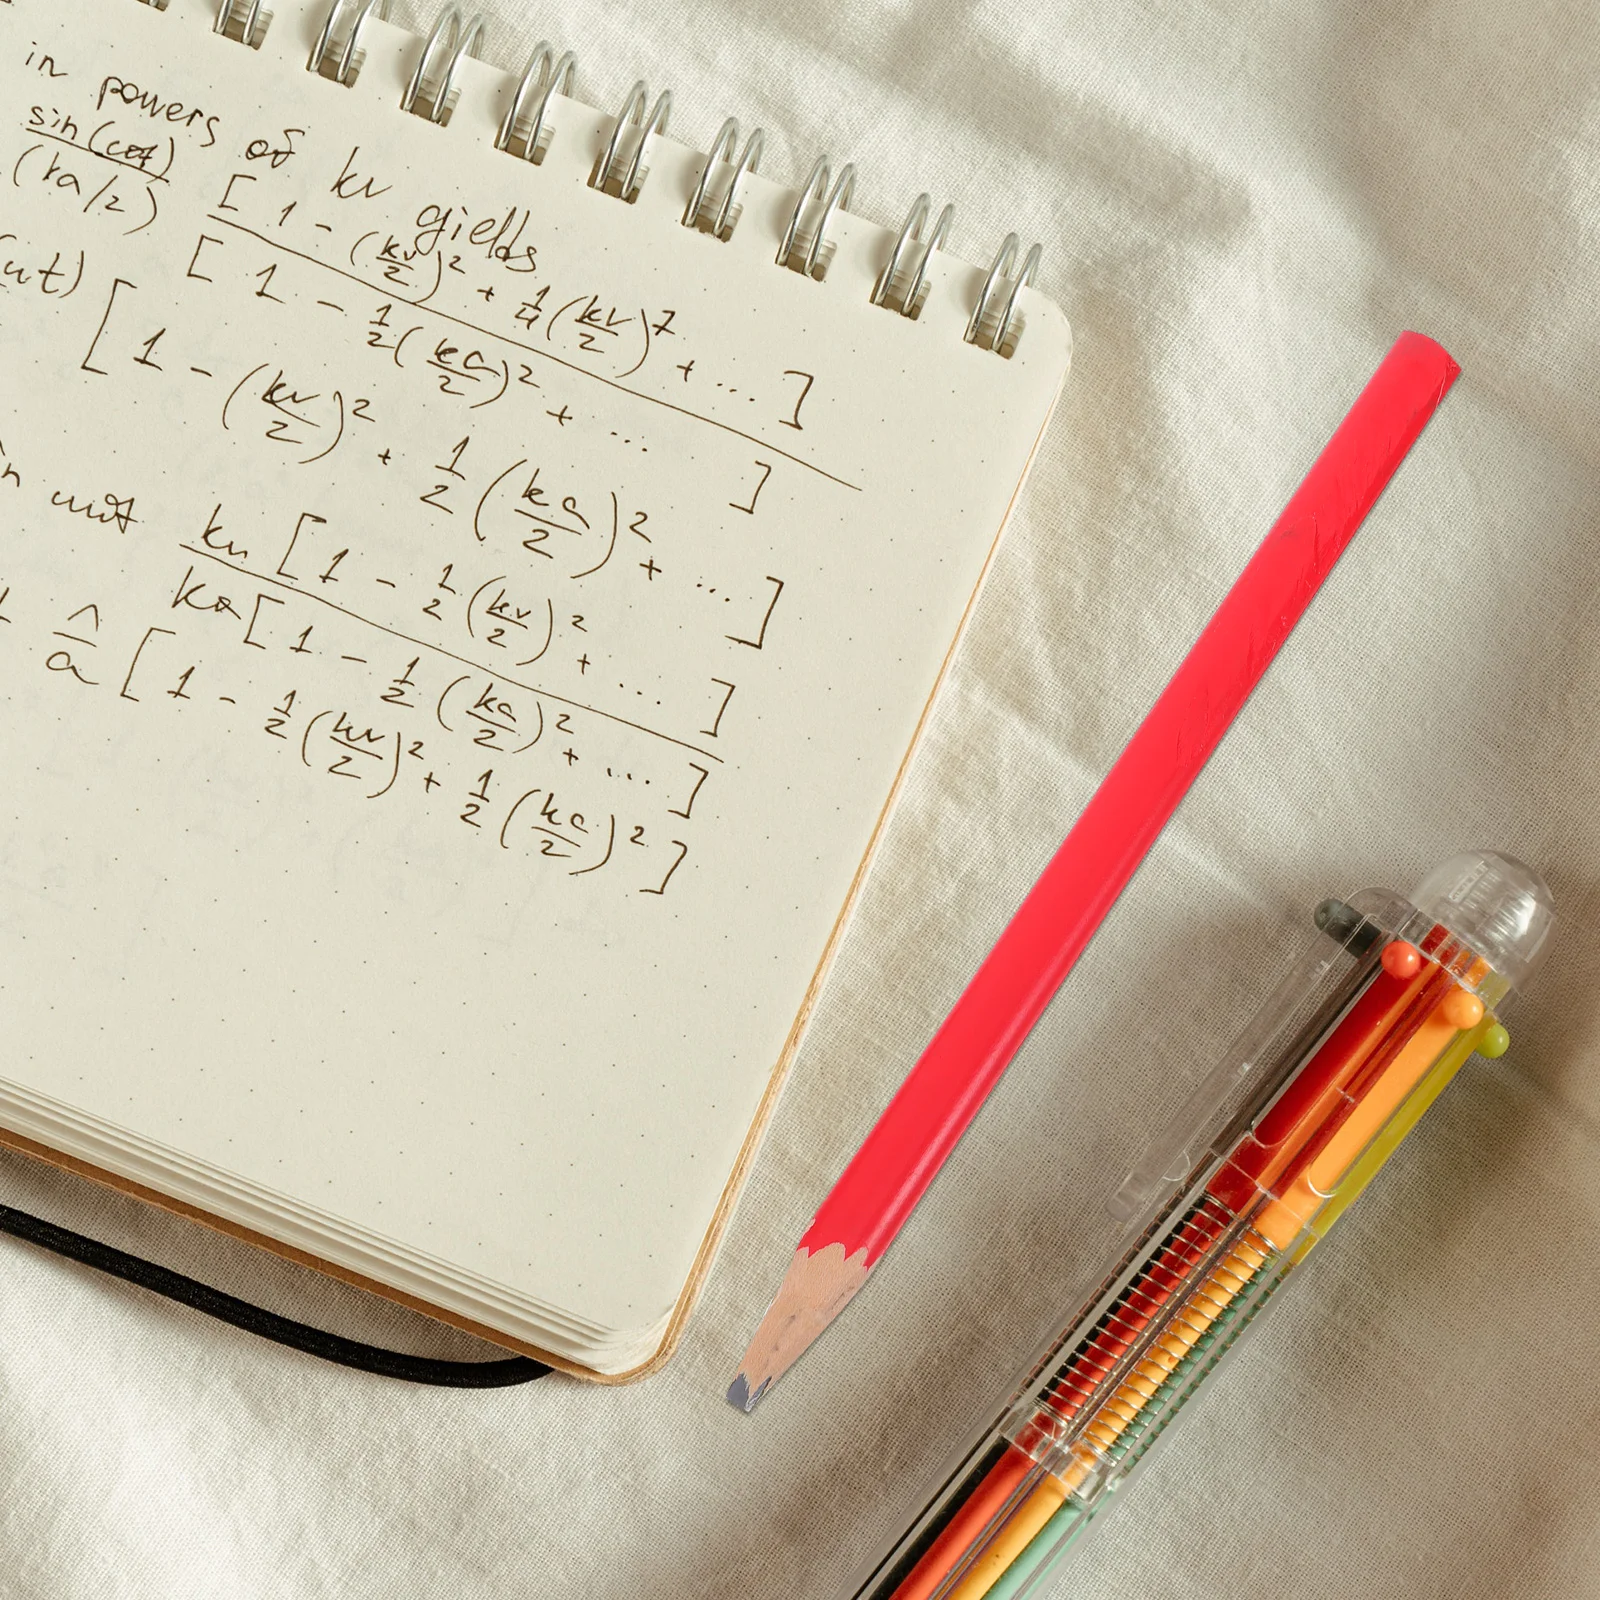 in powers of kr gields
sin(cot) / (ka/2) [ 1 - (kr/2)² + 1/4 (kr/2)⁷ + ... ]
[ 1 - 1/2 (ka/2)² + ... ]
(ut) [ 1 - (kr/2)² + 1/2 (ka/2)² + ... ]
kr [ 1 - 1/2 (kr/2)² + ... ]
ka [ 1 - 1/2 (ka/2)² + ... ]
^/a [ 1 - 1/2 (kr/2)² + 1/2 (ka/2)² ]